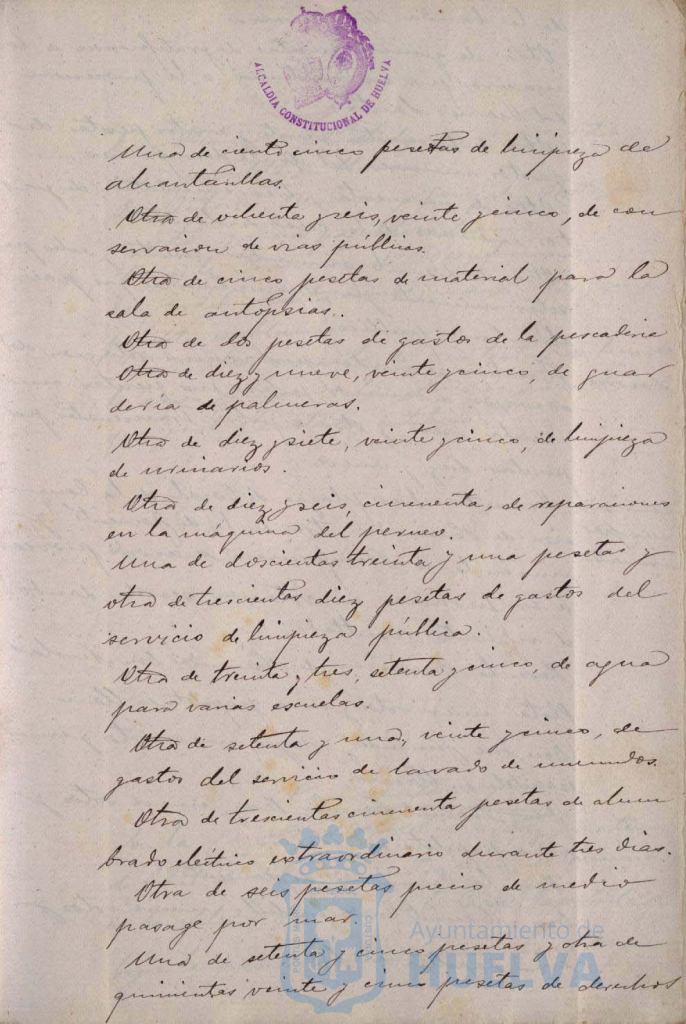 ALCALDIA CONSTITUCIONAL DE HUELVA
Una de ciento cinco pesetas de limpieza de
alcantarillas.
Otra de ochenta y seis, veinte y cinco, de con
servacion de vias públicas.
Otra de cinco pesetas de material para la
sala de autopsias.
Otra de dos pesetas de gastos de la pescaderia
Otra de diez y nueve, veinte y cinco, de guar
deria de palmeras.
Otra de diez y siete, veinte y cinco, de limpieza
de urinarios.
Otra de diez y seis, cincuenta, de reparaciones
en la máquina del perneo.
Una de doscientas treinta y una pesetas y
otra de trescientas diez pesetas de gastos del
servicio de limpieza pública.
Otra de treinta y tres, setenta y cinco, de agua
para varias escuelas.
Otra de setenta y una, veinte y cinco, de
gastos del servicio de lavado de inmundos.
Otra de trescientas cincuenta pesetas de alum
brado eléctrico extraordinario durante tres dias.
Otra de seis pesetas precio de medio
pasage por mar.
Ayuntamiento de
HUELVA
Una de setenta y cinco pesetas y otra de
quinientas veinte y cinco pesetas de derechos